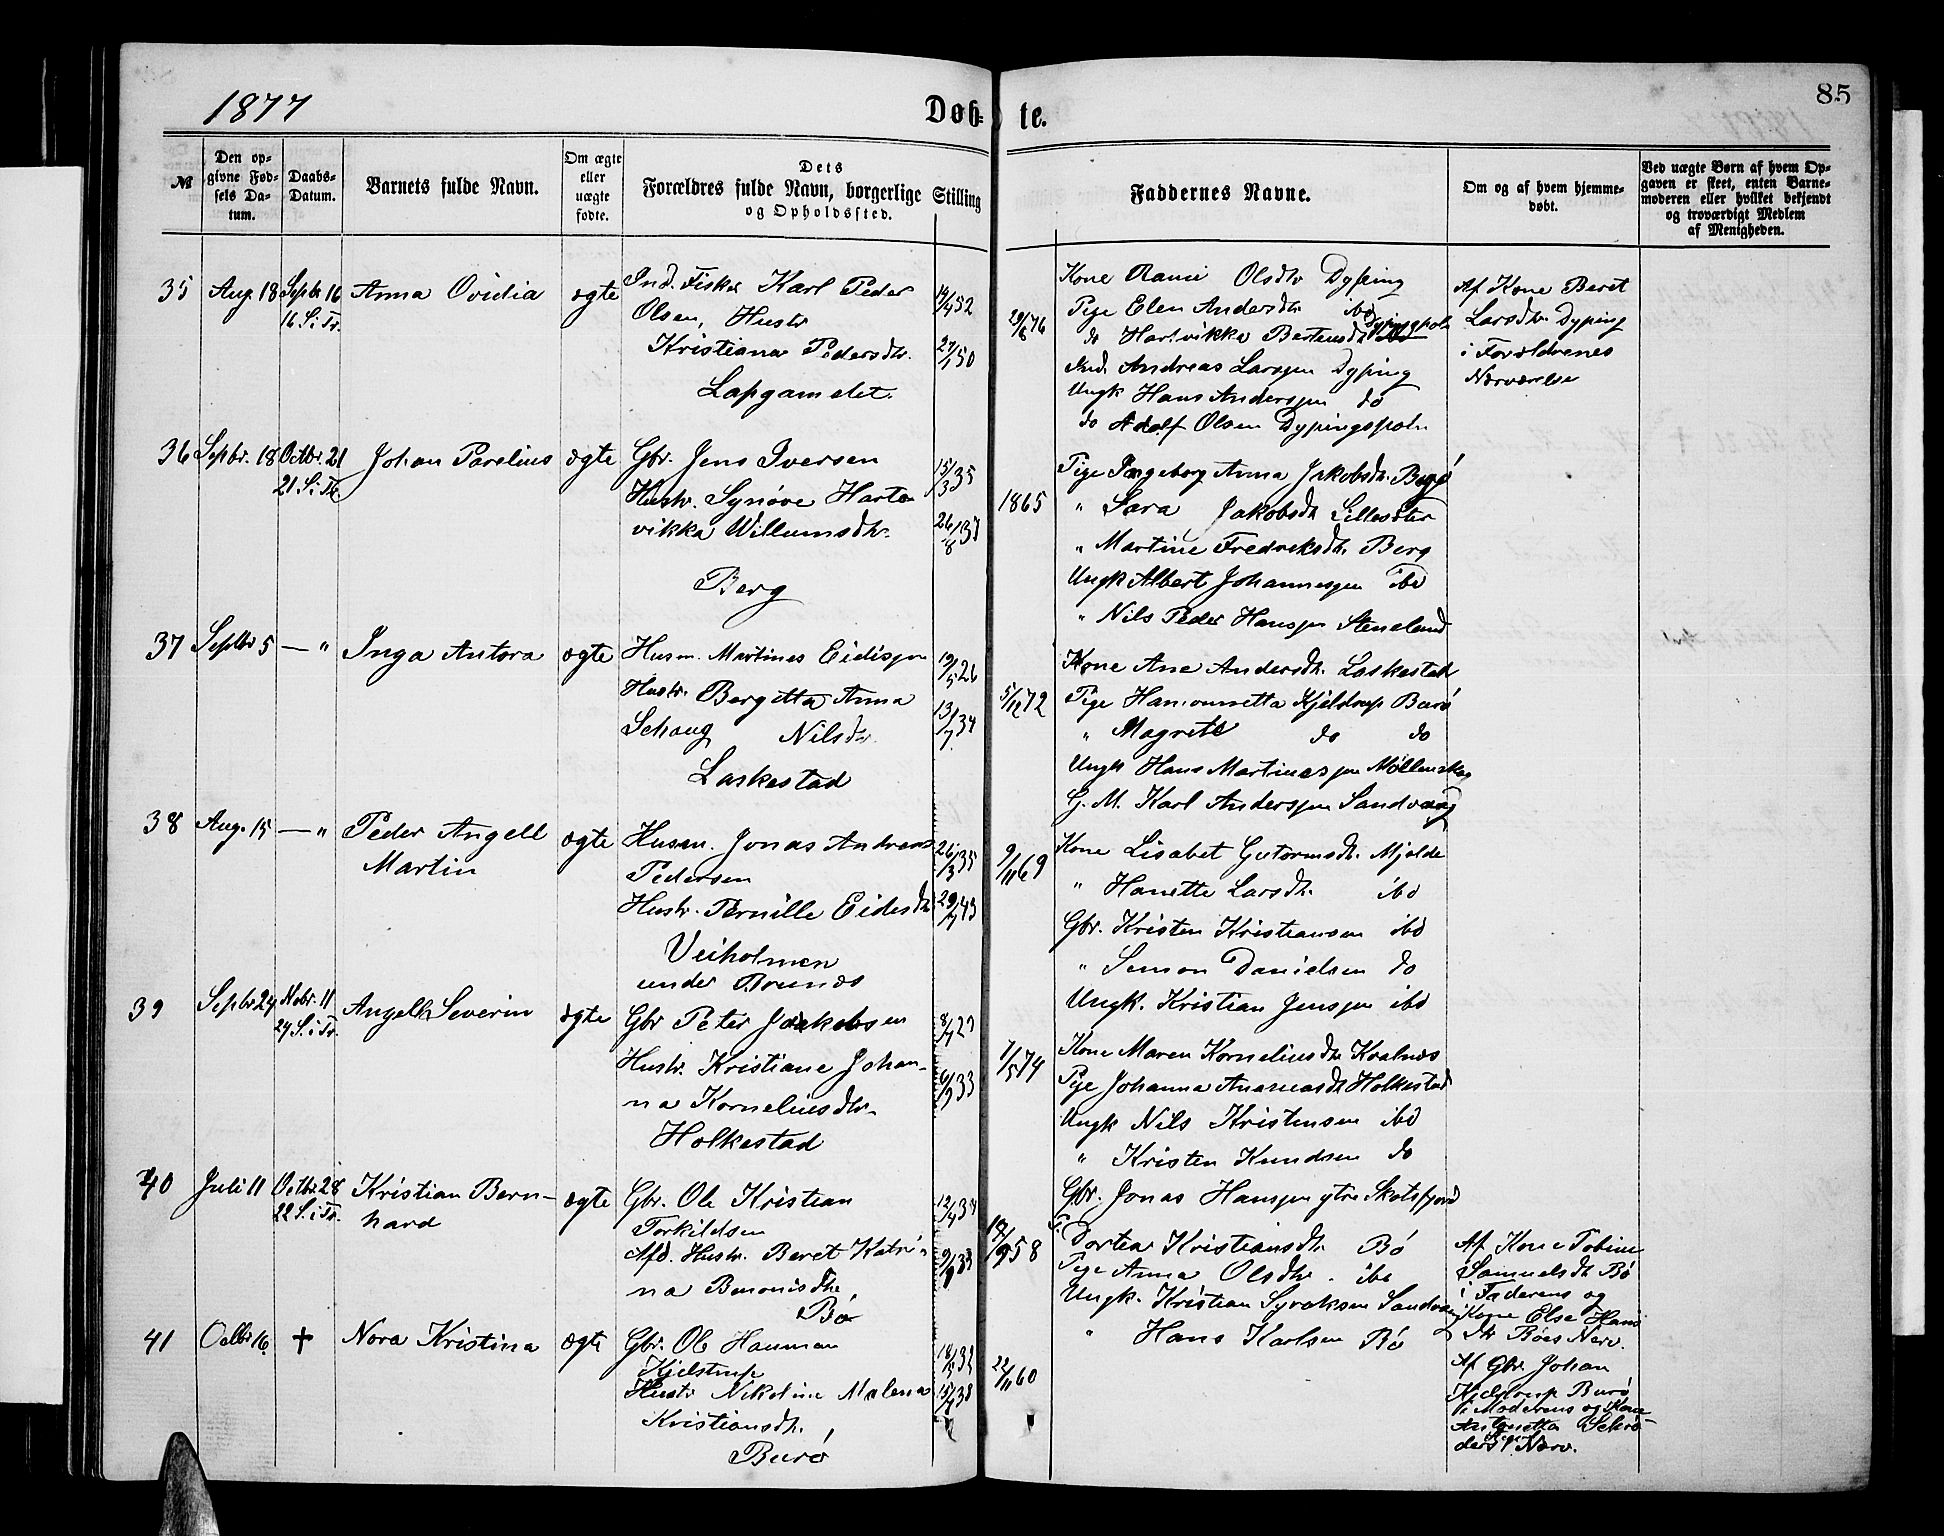 1877
Døb-
te.
85
№
Den op-
givne Fød-
sels Da-
tum.
Daabs-
Datum.
Barnets fulde Navn.
Om ægte
eller
uægte
fødte.
Dets
Forældres fulde Navn, borgerlige Stilling
og Opholdssted.
Faddernes Navne.
Om og af hvem hjemme-
døbt.
Ved uægte Børn af hvem Op-
gaven er skeet, enten Barne-
moderen eller hvilket bekjendt
og troværdigt Medlem
af Menigheden.
35 Aug. 18 Septbr 16 Anna Ovidia ægte Ind. Fisker Karl Peder
16 S. i Tr. Olsen, Hustr
Kristiana Pedersdtr.
Lapgamelet.
Kone Olsdtr Dyping
Pige Elen Andersdtr ibd
do Hartvikka Bertensdtr
Ind. Andreas Larssen Dyping
Ungk Hans Anderssen do
do Adolf Olsen Dypingspoln
Af Kone Beret
Larsdtr. Dyping
i Forældrenes
Nærværelse
36 Septbr. 18 Octbr. 21 Johan Parelius ægte Gbr. Jens Iversen 15/3 35
21 S. i Tr. Hustr. Synøve Hart-
vikka Willumsdtr.
Berg
1865
Pige Ingeborg Anna Jakobsdtr.
" Sara Jakobsdtr
" Martine Fredriksdtr. Berg
Ungk Albert Johannessen ibd
" Nils Peder Hanssen Steneland
37 Septbr 5 — " Inga Antora ægte Husm. Martines Eidissen 19/5 26
Hustr. Bergitta Anna
Schaug Nilsdtr. 13/7 34
Laskestad
5/12 72
Kone Ane Andersdtr. Laskestad
Pige Kjeldrup Burø
" Magrete do do
Ungk Hans Martinessen
G. M. Karl Anderssen Sandvaag
38 Aug. 15 — " Peder Angell ægte Husm. Jonas Andreas 26/3 35
Martin Pedersen
Hustr. Pernille Eidesdtr
Veiholmen
under Brunæs
9/11 69
Kone Lisabet Gutormsdtr. Mjelde
" Hanette Larsdtr. ibd
Gbr. Kristen Kristiansen ibd
" Simon Danielsen do
Ungk. Kristian Jenssen ibd
39 Septbr 24 Nobr. 11 Angell Severin ægte Gbr Peter Jakobsen
24 S. i Tr. Hustr. Kristiane Johan-
na Korneliusdtr.
Holkestad
1/5 74
Kone Maren Korneliusdtr Kvalnæs
Pige Johanna Andreasdtr Holkestad
Ungk Nils Kristensen ibd
" Kristen Knudsen do
Gbr. Jonas Hanssen ytre Skotsfjord
40 Juli 11 Octbr. 28 Kristian Bern- ægte Gbr. Ole Kristian
22 S. i Tr. hard Torkildsen
Afd. Hustr. Beret Katri-
na Benonisdtr
Bø
Dortea Kristiansdtr Bø
Pige Anna Olsdtr. ibd
Ungk. Kristian Syvaksen
" Hans Karlsen Bø
Af Kone Tobine
Samuelsdtr Bø
i Faderens og
Kone Else Hans
dtr Bøes Nærv.
41 Octbr 16. + Nora Kristina ægte Gbr. Ole Hauman
Kjelstrup
Hustr Nikoline Malena
Kristiansdtr.
Burø
22/11 60
Af Gbr. Johan
Kjelstrup Burø
i Moderens og Kone
Antonetta Schrø-
ders Nærv.